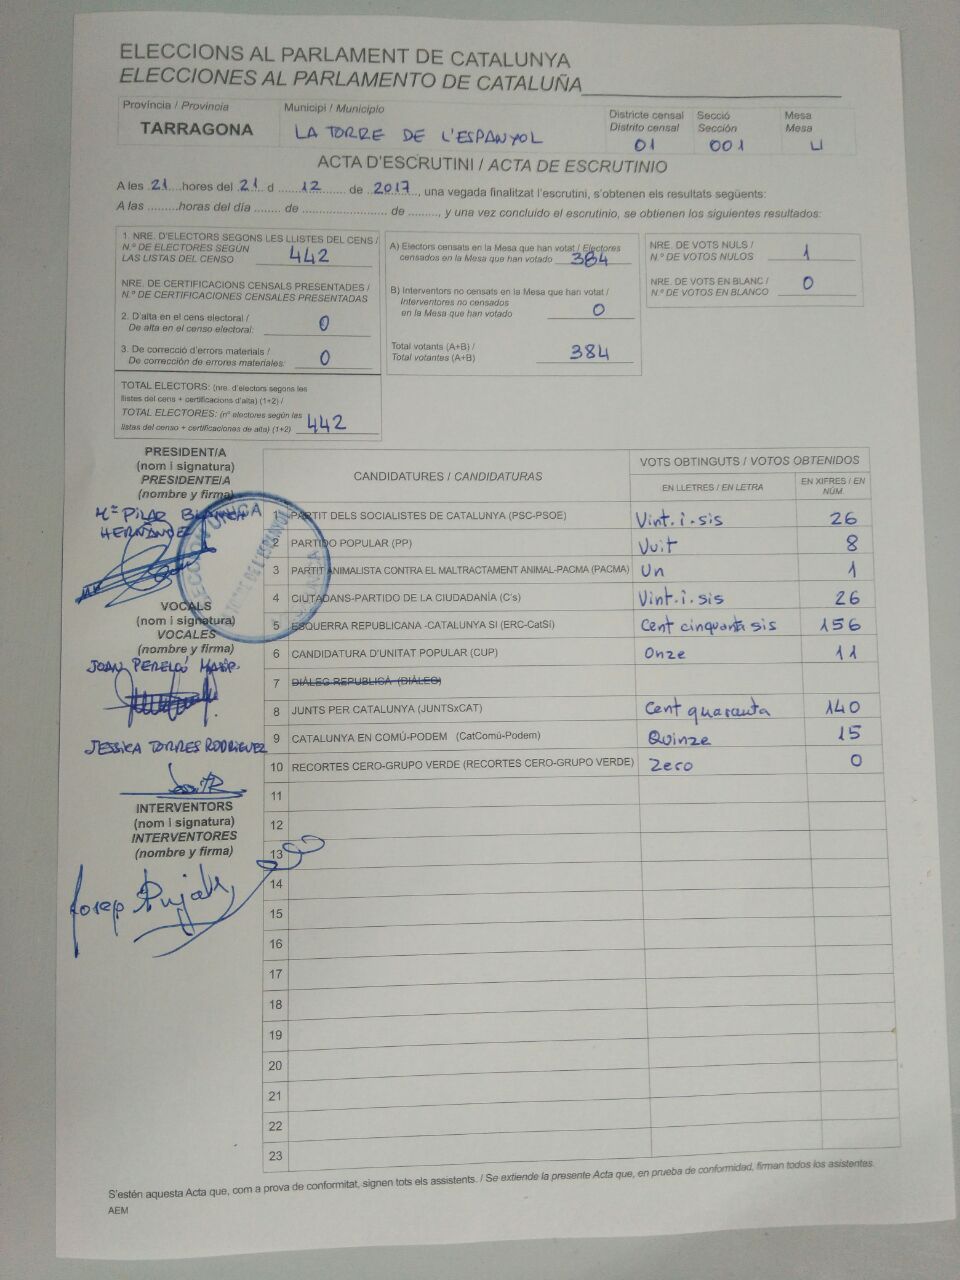 ELECCIONS AL PARLAMENT DE CATALUNYA
ELECCIONES AL PARLAMENTO DE CATALUÑA
Província / Provincia
TARRAGONA
Municipi / Municipio
LA TORRE DE L'ESPANYOL
Districte censal
Distrito censal
01
Secció
Sección
001
Mesa
Mesa
U
ACTA D'ESCRUTINI / ACTA DE ESCRUTINIO
A les 21 hores del 21 d 12 de 2017, una vegada finalitzat l'escrutini, s'obtenen els resultats següents:
A las .........horas del día ........ de ......................... de ........., y una vez concluido el escrutinio, se obtienen los siguientes resultados:
1. NRE. D'ELECTORS SEGONS LES LLISTES DEL CENS /
N.º DE ELECTORES SEGÚN
LAS LISTAS DEL CENSO 442
NRE. DE CERTIFICACIONS CENSALS PRESENTADES /
N.º DE CERTIFICACIONES CENSALES PRESENTADAS
2. D'alta en el cens electoral /
De alta en el censo electoral: 0
3. De correcció d'errors materials /
De corrección de errores materiales: 0
TOTAL ELECTORS: (nre. d'electors segons les
llistes del cens + certificacions d'alta) (1+2) /
TOTAL ELECTORES: (nº electores según las
listas del censo + certificaciones de alta) (1+2) 442
A) Electors censats en la Mesa que han votat / Electores
censados en la Mesa que han votado 384
B) Interventors no censats en la Mesa que han votat /
Interventores no censados
en la Mesa que han votado 0
Total votants (A+B) /
Total votantes (A+B) 384
NRE. DE VOTS NULS /
N.º DE VOTOS NULOS 1
NRE. DE VOTS EN BLANC /
N.º DE VOTOS EN BLANCO 0
PRESIDENT/A
(nom i signatura)
PRESIDENTE/A
(nombre y firma)
Mª PILAR BLANCH
HERNÁNDEZ
VOCALS
(nom i signatura)
VOCALES
(nombre y firma)
JOAN PERELLÓ MASIP.
JESSICA TORRES RODRIGUEZ
INTERVENTORS
(nom i signatura)
INTERVENTORES
(nombre y firma)
Josep Pujals
CANDIDATURES / CANDIDATURAS
VOTS OBTINGUTS / VOTOS OBTENIDOS
EN LLETRES / EN LETRA
EN XIFRES / EN NÚM.
1 PARTIT DELS SOCIALISTES DE CATALUNYA (PSC-PSOE) Vint.i.sis 26
2 PARTIDO POPULAR (PP) Vuit 8
3 PARTIT ANIMALISTA CONTRA EL MALTRACTAMENT ANIMAL-PACMA (PACMA) Un 1
4 CIUTADANS-PARTIDO DE LA CIUDADANÍA (C's) Vint.i.sis 26
5 ESQUERRA REPUBLICANA -CATALUNYA SÍ (ERC-CatSí) Cent cinquanta sis 156
6 CANDIDATURA D'UNITAT POPULAR (CUP) Onze 11
7 DIÀLEG REPUBLICÀ (DIÀLEG)
8 JUNTS PER CATALUNYA (JUNTSxCAT) Cent quaranta 140
9 CATALUNYA EN COMÚ-PODEM (CatComú-Podem) Quinze 15
10 RECORTES CERO-GRUPO VERDE (RECORTES CERO-GRUPO VERDE) Zero 0
11
12
13
14
15
16
17
18
19
20
21
22
23
S'estén aquesta Acta que, com a prova de conformitat, signen tots els assistents. / Se extiende la presente Acta que, en prueba de conformidad, firman todos los asistentes.
AEM